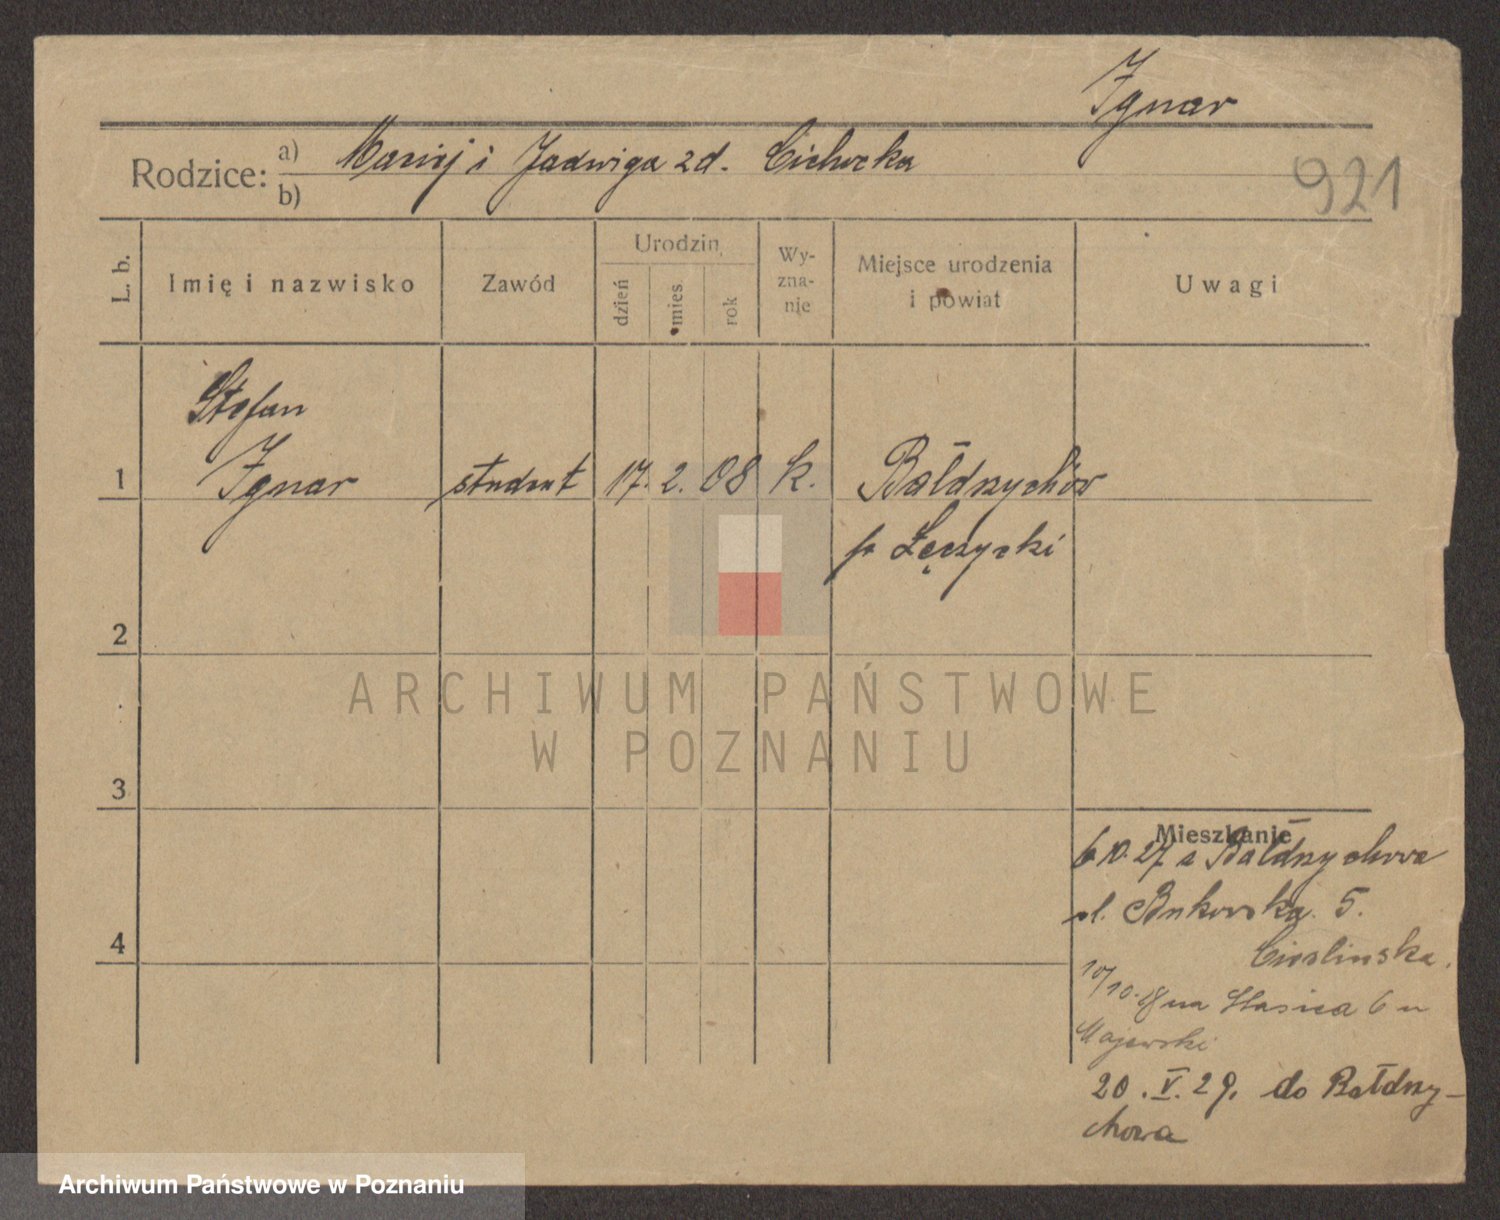 Ignar
Rodzice: a) Maciej i Jadwiga zd. Cichocka
b)
921
L. b.
Imię i nazwisko
Zawód
Urodzin
dzień
mies.
rok
Wy-
zna-
nie
Miejsce urodzenia
i powiat
Uwagi
Stefan
1 Ignar student 17. 2. 08 k. Bałdrzychów
p. Łęczycki
2
3
4
Mieszkanie
6.10.27 z Bałdrzychowa
ul. Bukowska 5.
Cieslinska.
10/10.28 na Stasica 6 u
Majewski
20. V. 29. do Bałdrzy-
chowa
ARCHIWUM PAŃSTWOWE
W POZNANIU
Archiwum Państwowe w Poznaniu